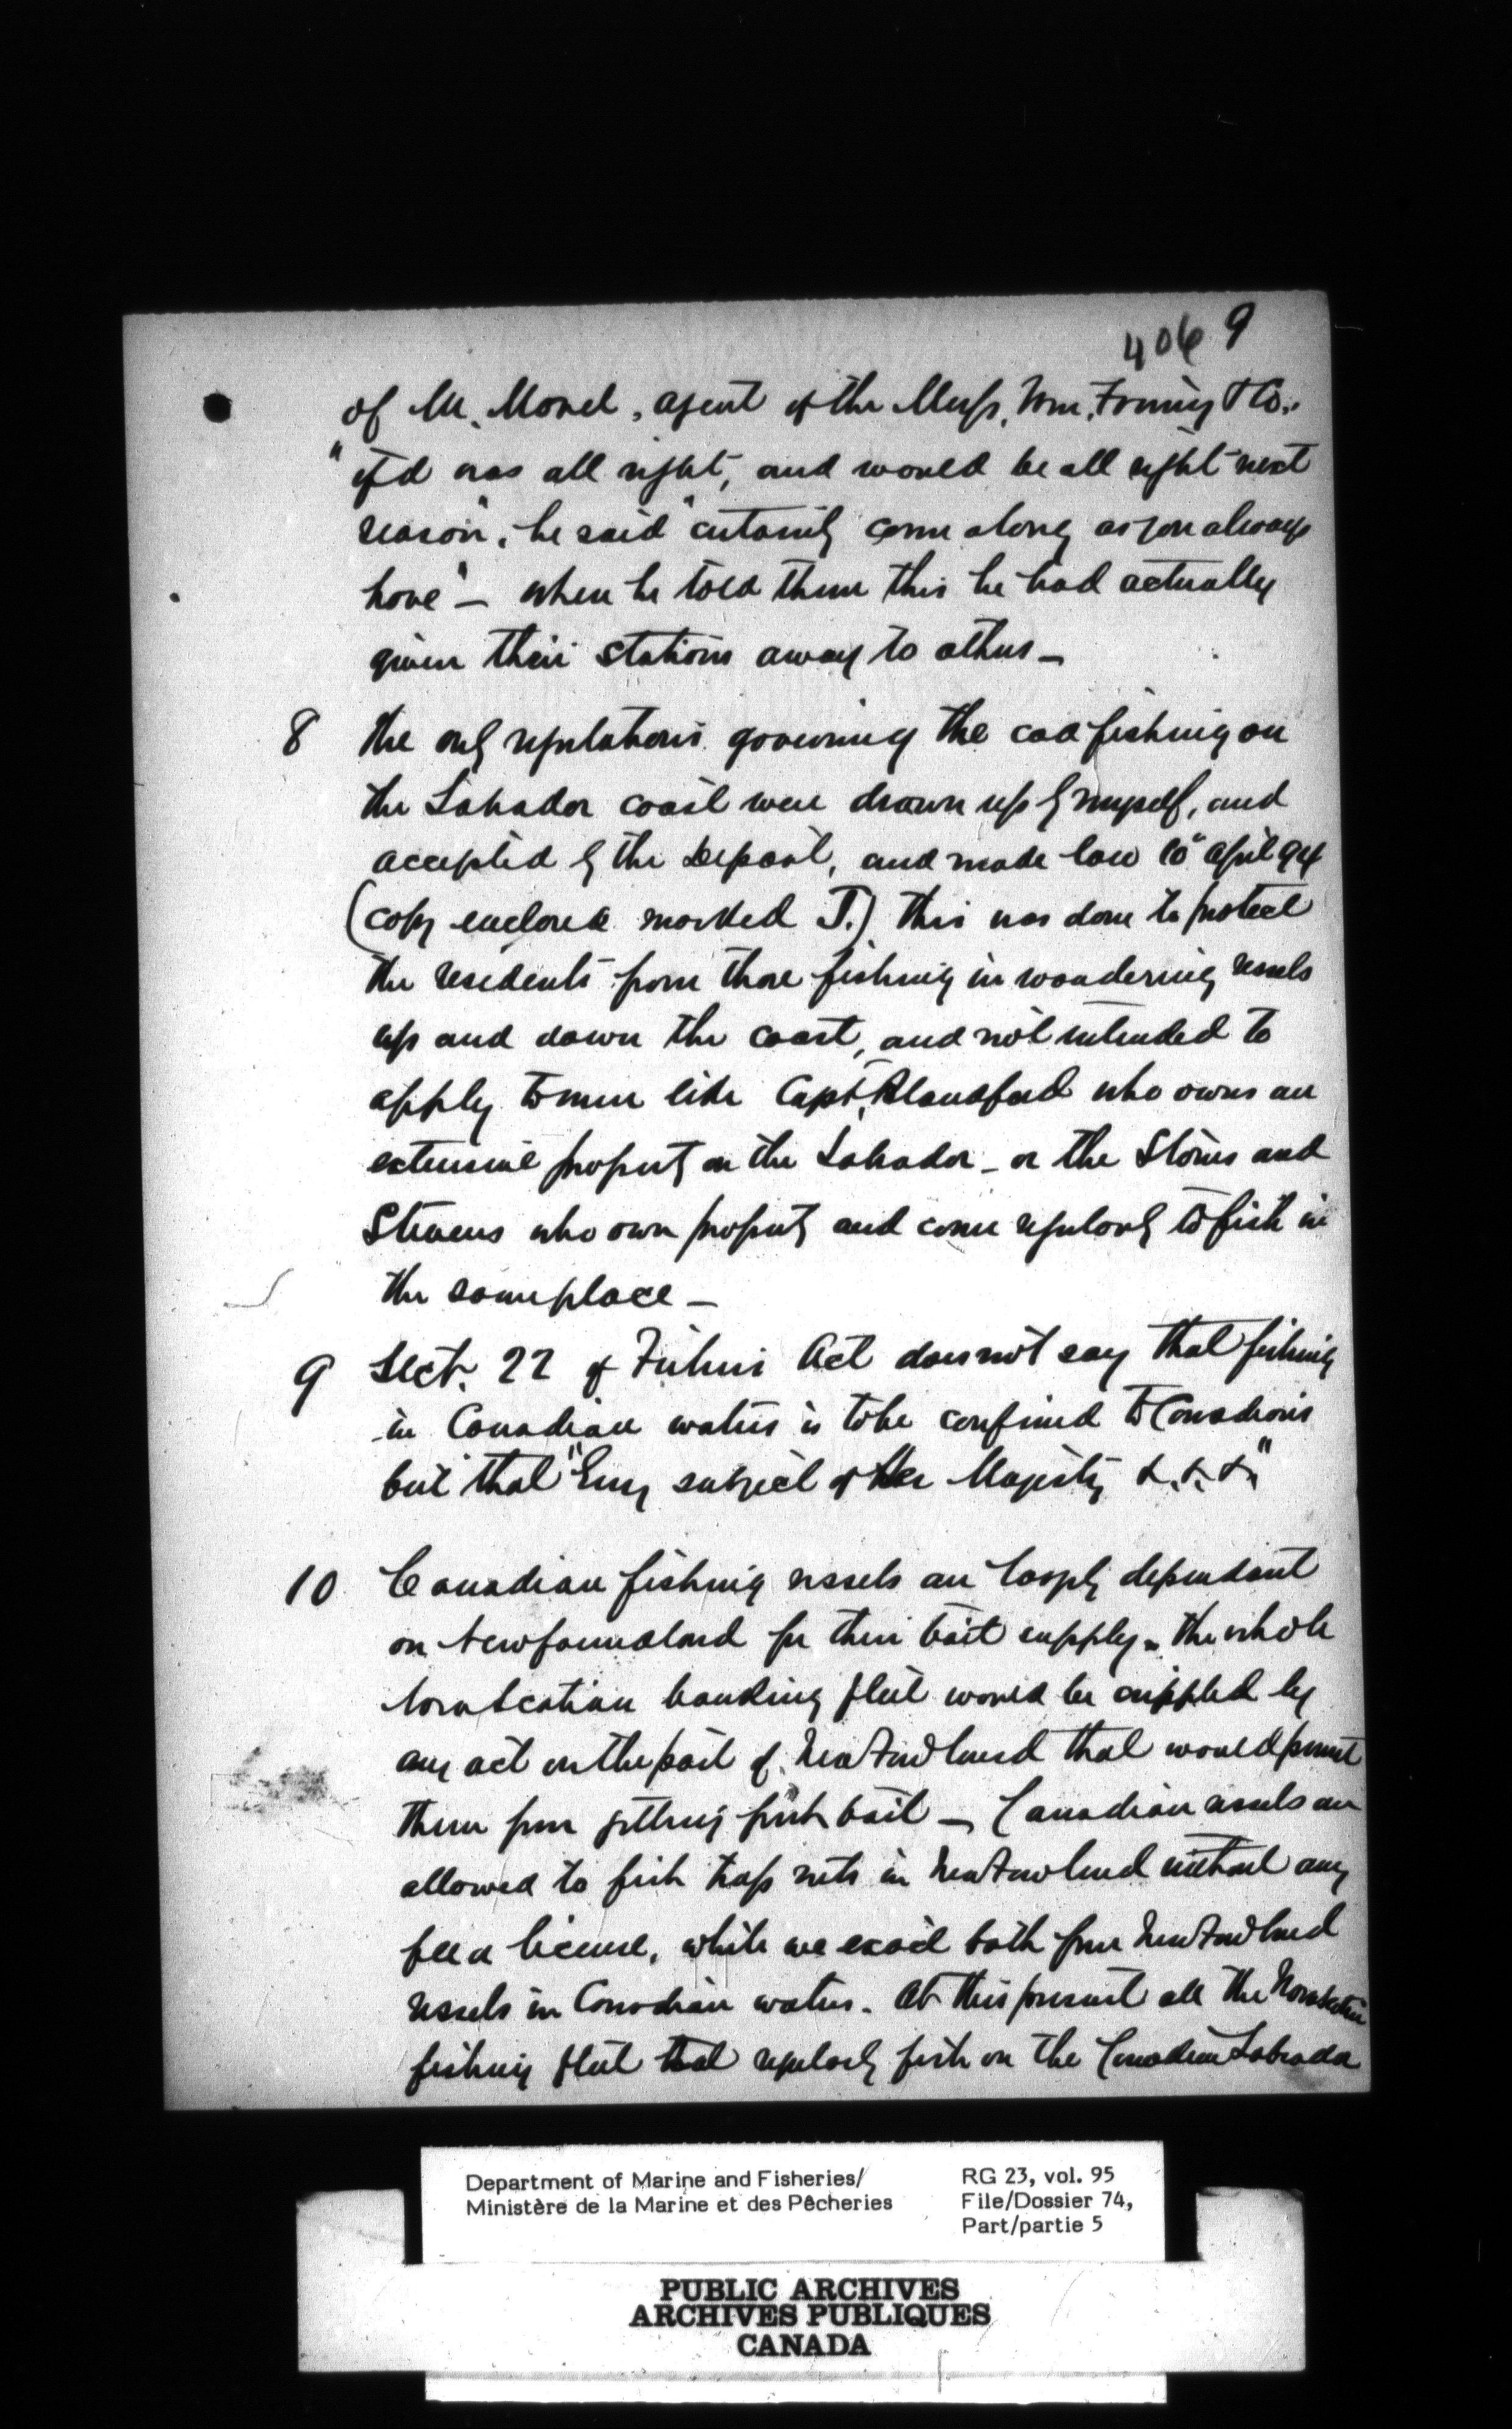 406 9
of Mr. Morel, agent of the Messrs. Wm. Fruing & Co.,
was all right, and would be all right next
season", he said "certainly come along as you always
have" — when he told them this he had actually
given their stations away to others —
8 The only regulations governing the cod fishing on
the Labrador coast were drawn up by myself, and
accepted by the Depart, and made law 10" April 94
(copy enclosed marked J.) This was done to protect
the residents from those fishing in wandering vessels
up and down the coast, and not intended to
apply to men like Capt. Blandford who owns an
extensive property on the Labrador — or the Stones and
Stevens who own property and come regularly to fish in
the same place —
9 Sect. 22 of Fisheries Act does not say that fishing
in Canadian waters is to be confined to Canadians
but that "Every subject of Her Majesty &. &. &."
10 Canadian fishing vessels are largely dependant
on Newfoundland for their bait supply — the whole
Nova Scotian banking fleet would be crippled by
any act on the part of Newfoundland that would prevent
them from getting fresh bait — Canadian vessels are
allowed to fish trap nets in Newfoundland without any
fee or license, while we exact both from Newfoundland
vessels in Canadian waters. At this present all the Nova Scotia
fishing fleet that regularly fish on the Canadian Labrador
Department of Marine and Fisheries/
Ministère de la Marine et des Pêcheries
RG 23, vol. 95
File/Dossier 74,
Part/partie 5
PUBLIC ARCHIVES
ARCHIVES PUBLIQUES
CANADA